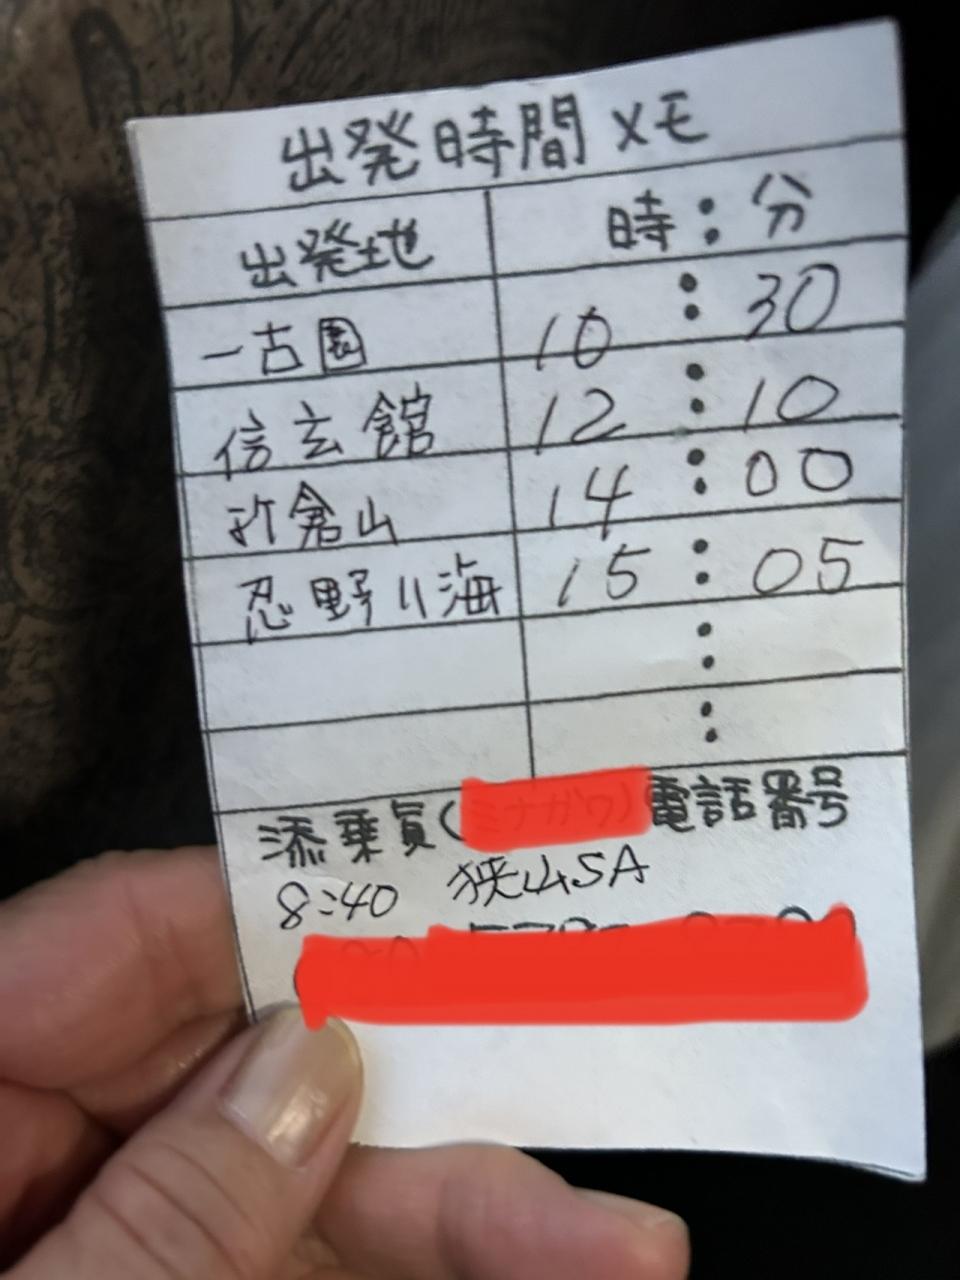 出発時間メモ
出発地 時:分
一古園 10:30
信玄館 12:10
倉山 14:00
忍野八海 15:05
添乗員( )電話番号
8:40 狭山SA